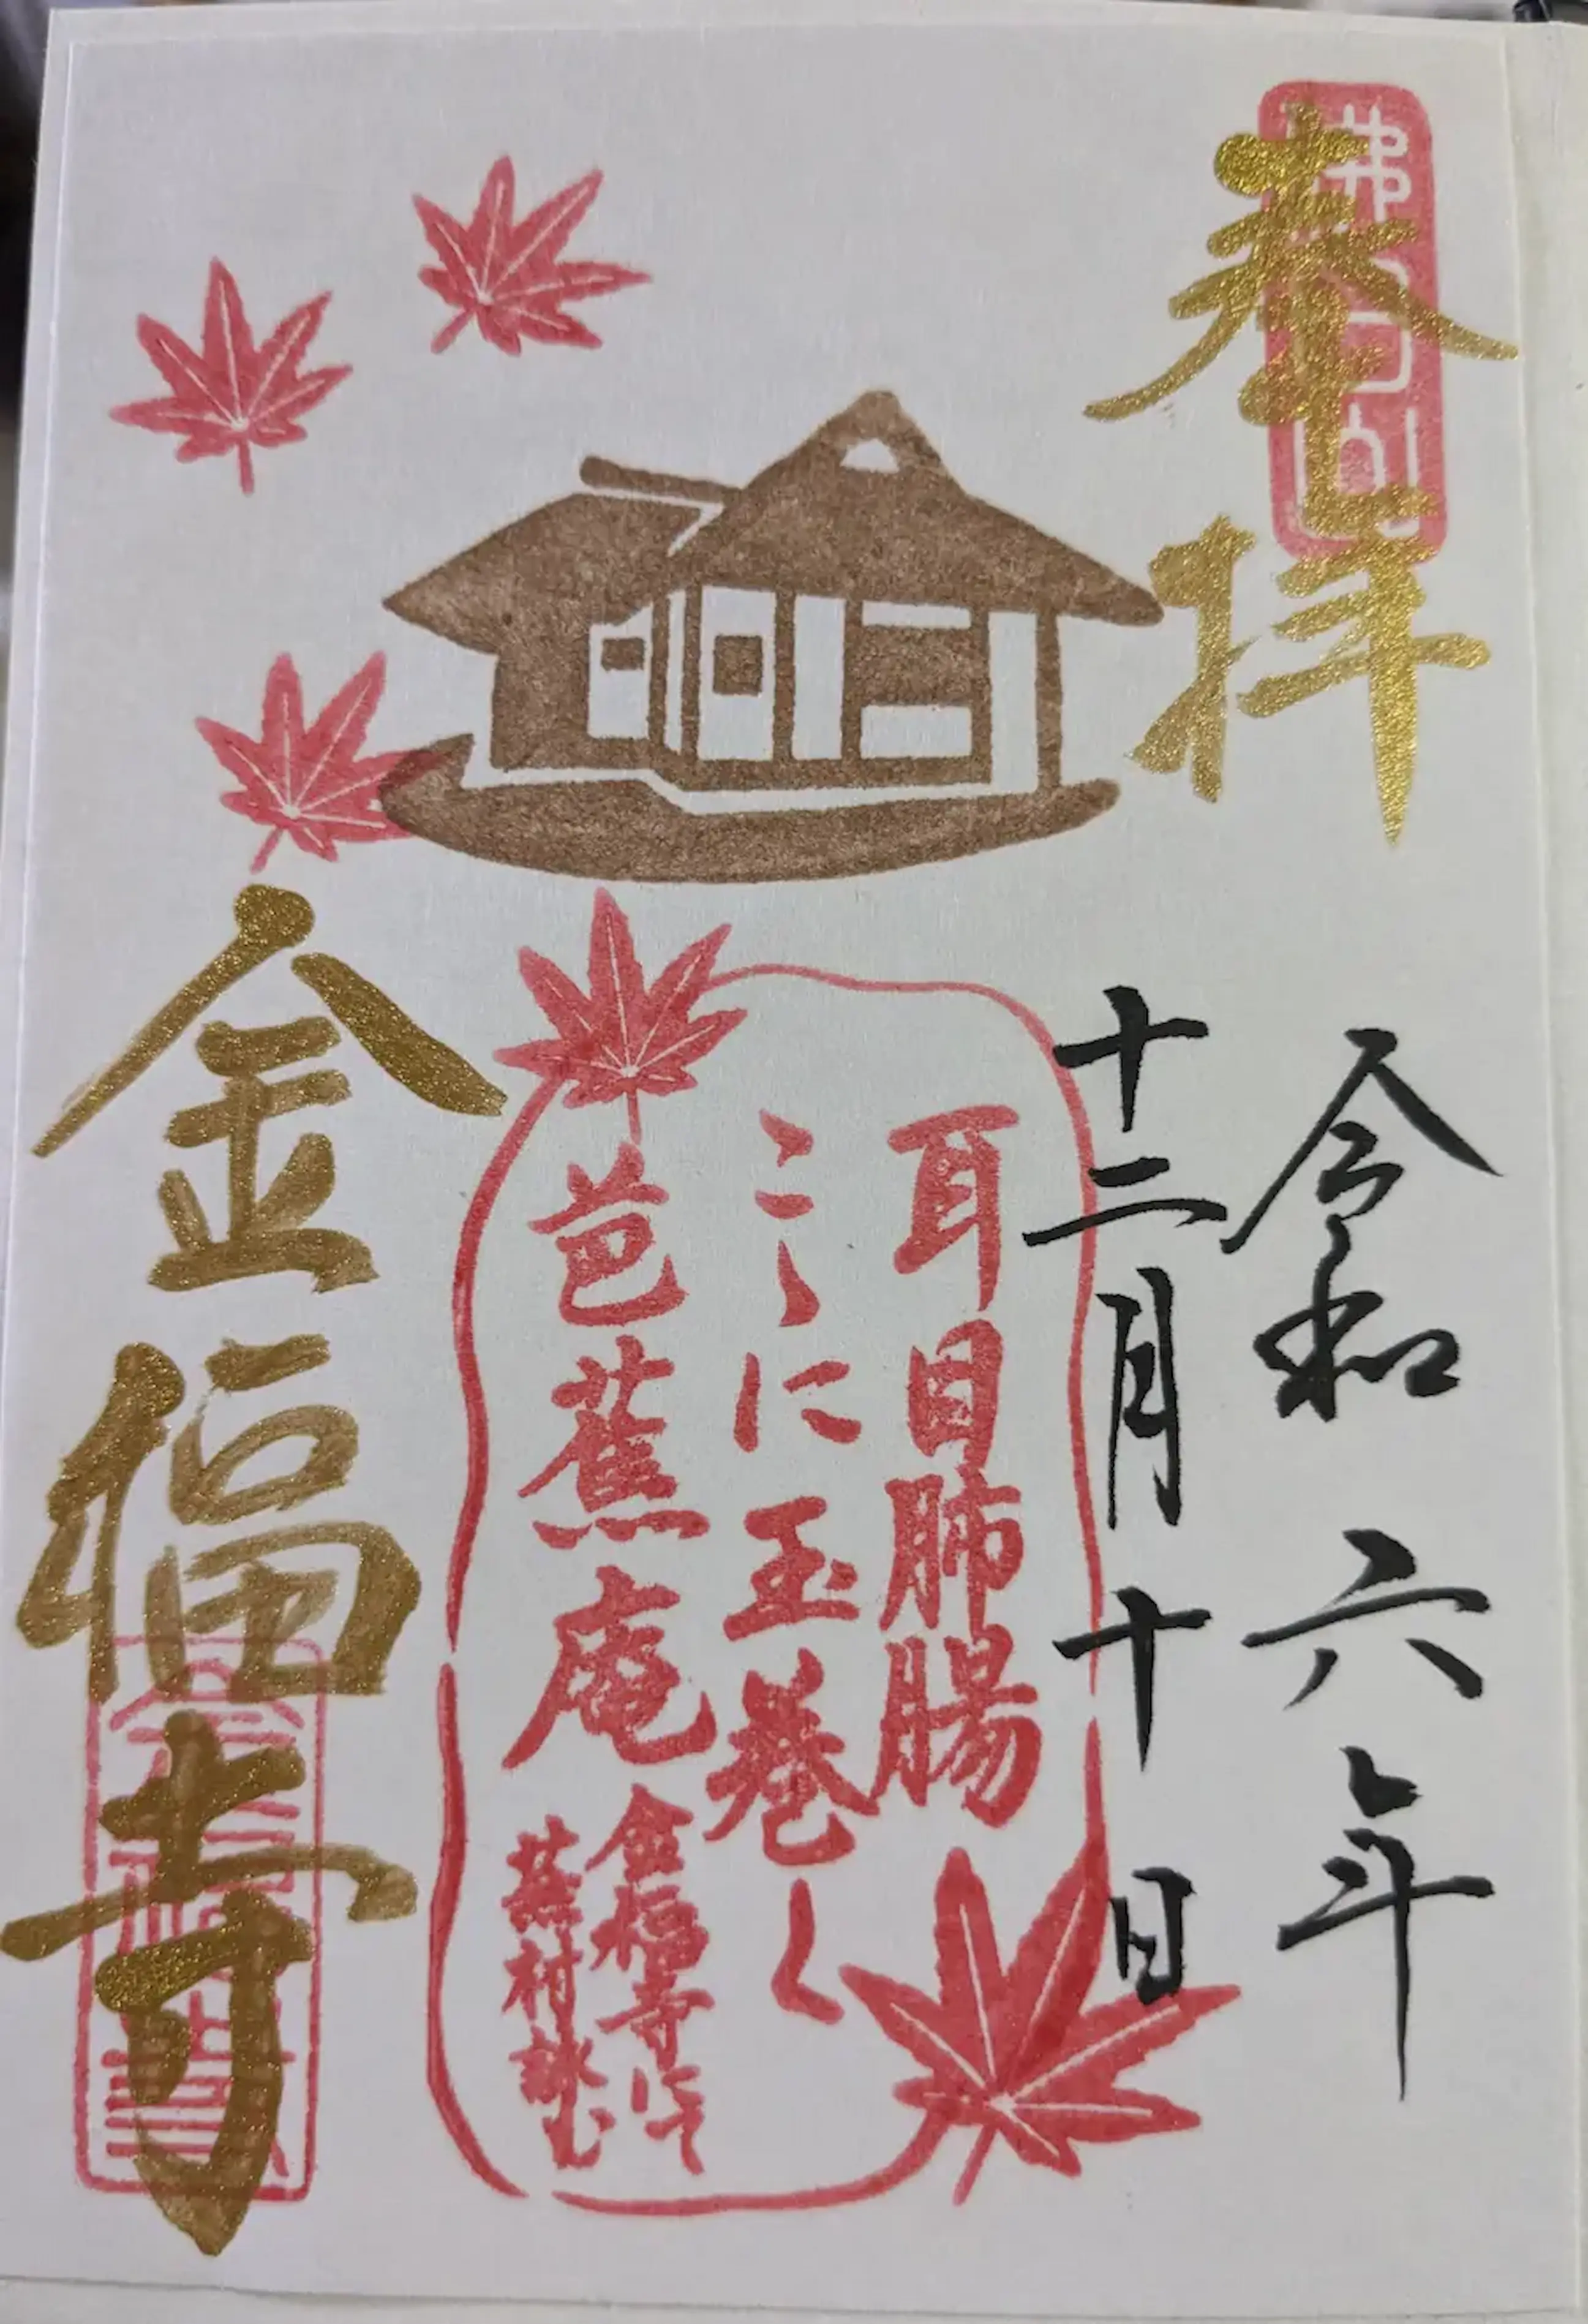 奉拝
令和六年
十二月十日
耳目肺腸
こゝに玉巻く
芭蕉庵
金福寺にて
蕪村詠む
金福寺